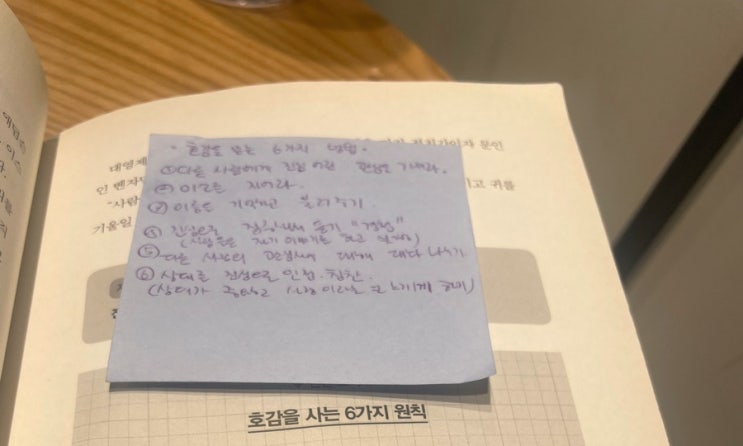 대영제
문인
인 벤자
이고 귀를
"사람
기울일
· 호감을 얻는 6가지 방법.
① 다른 사람에게 진정 어린 관심을 가져라.
② 미소를 지어라.
③ 이름을 기억하고 불러주기
④ 진심으로 듣기 "경청"
(사람들은 자기 이야기를 하고 )
⑤ 다른 사람의 관심사에 대해 대화 나누기
⑥ 상대를 진심으로 인정, 칭찬.
(상대가 중요한 사람이라고 느끼게 하기)
호감을 사는 6가지 원칙